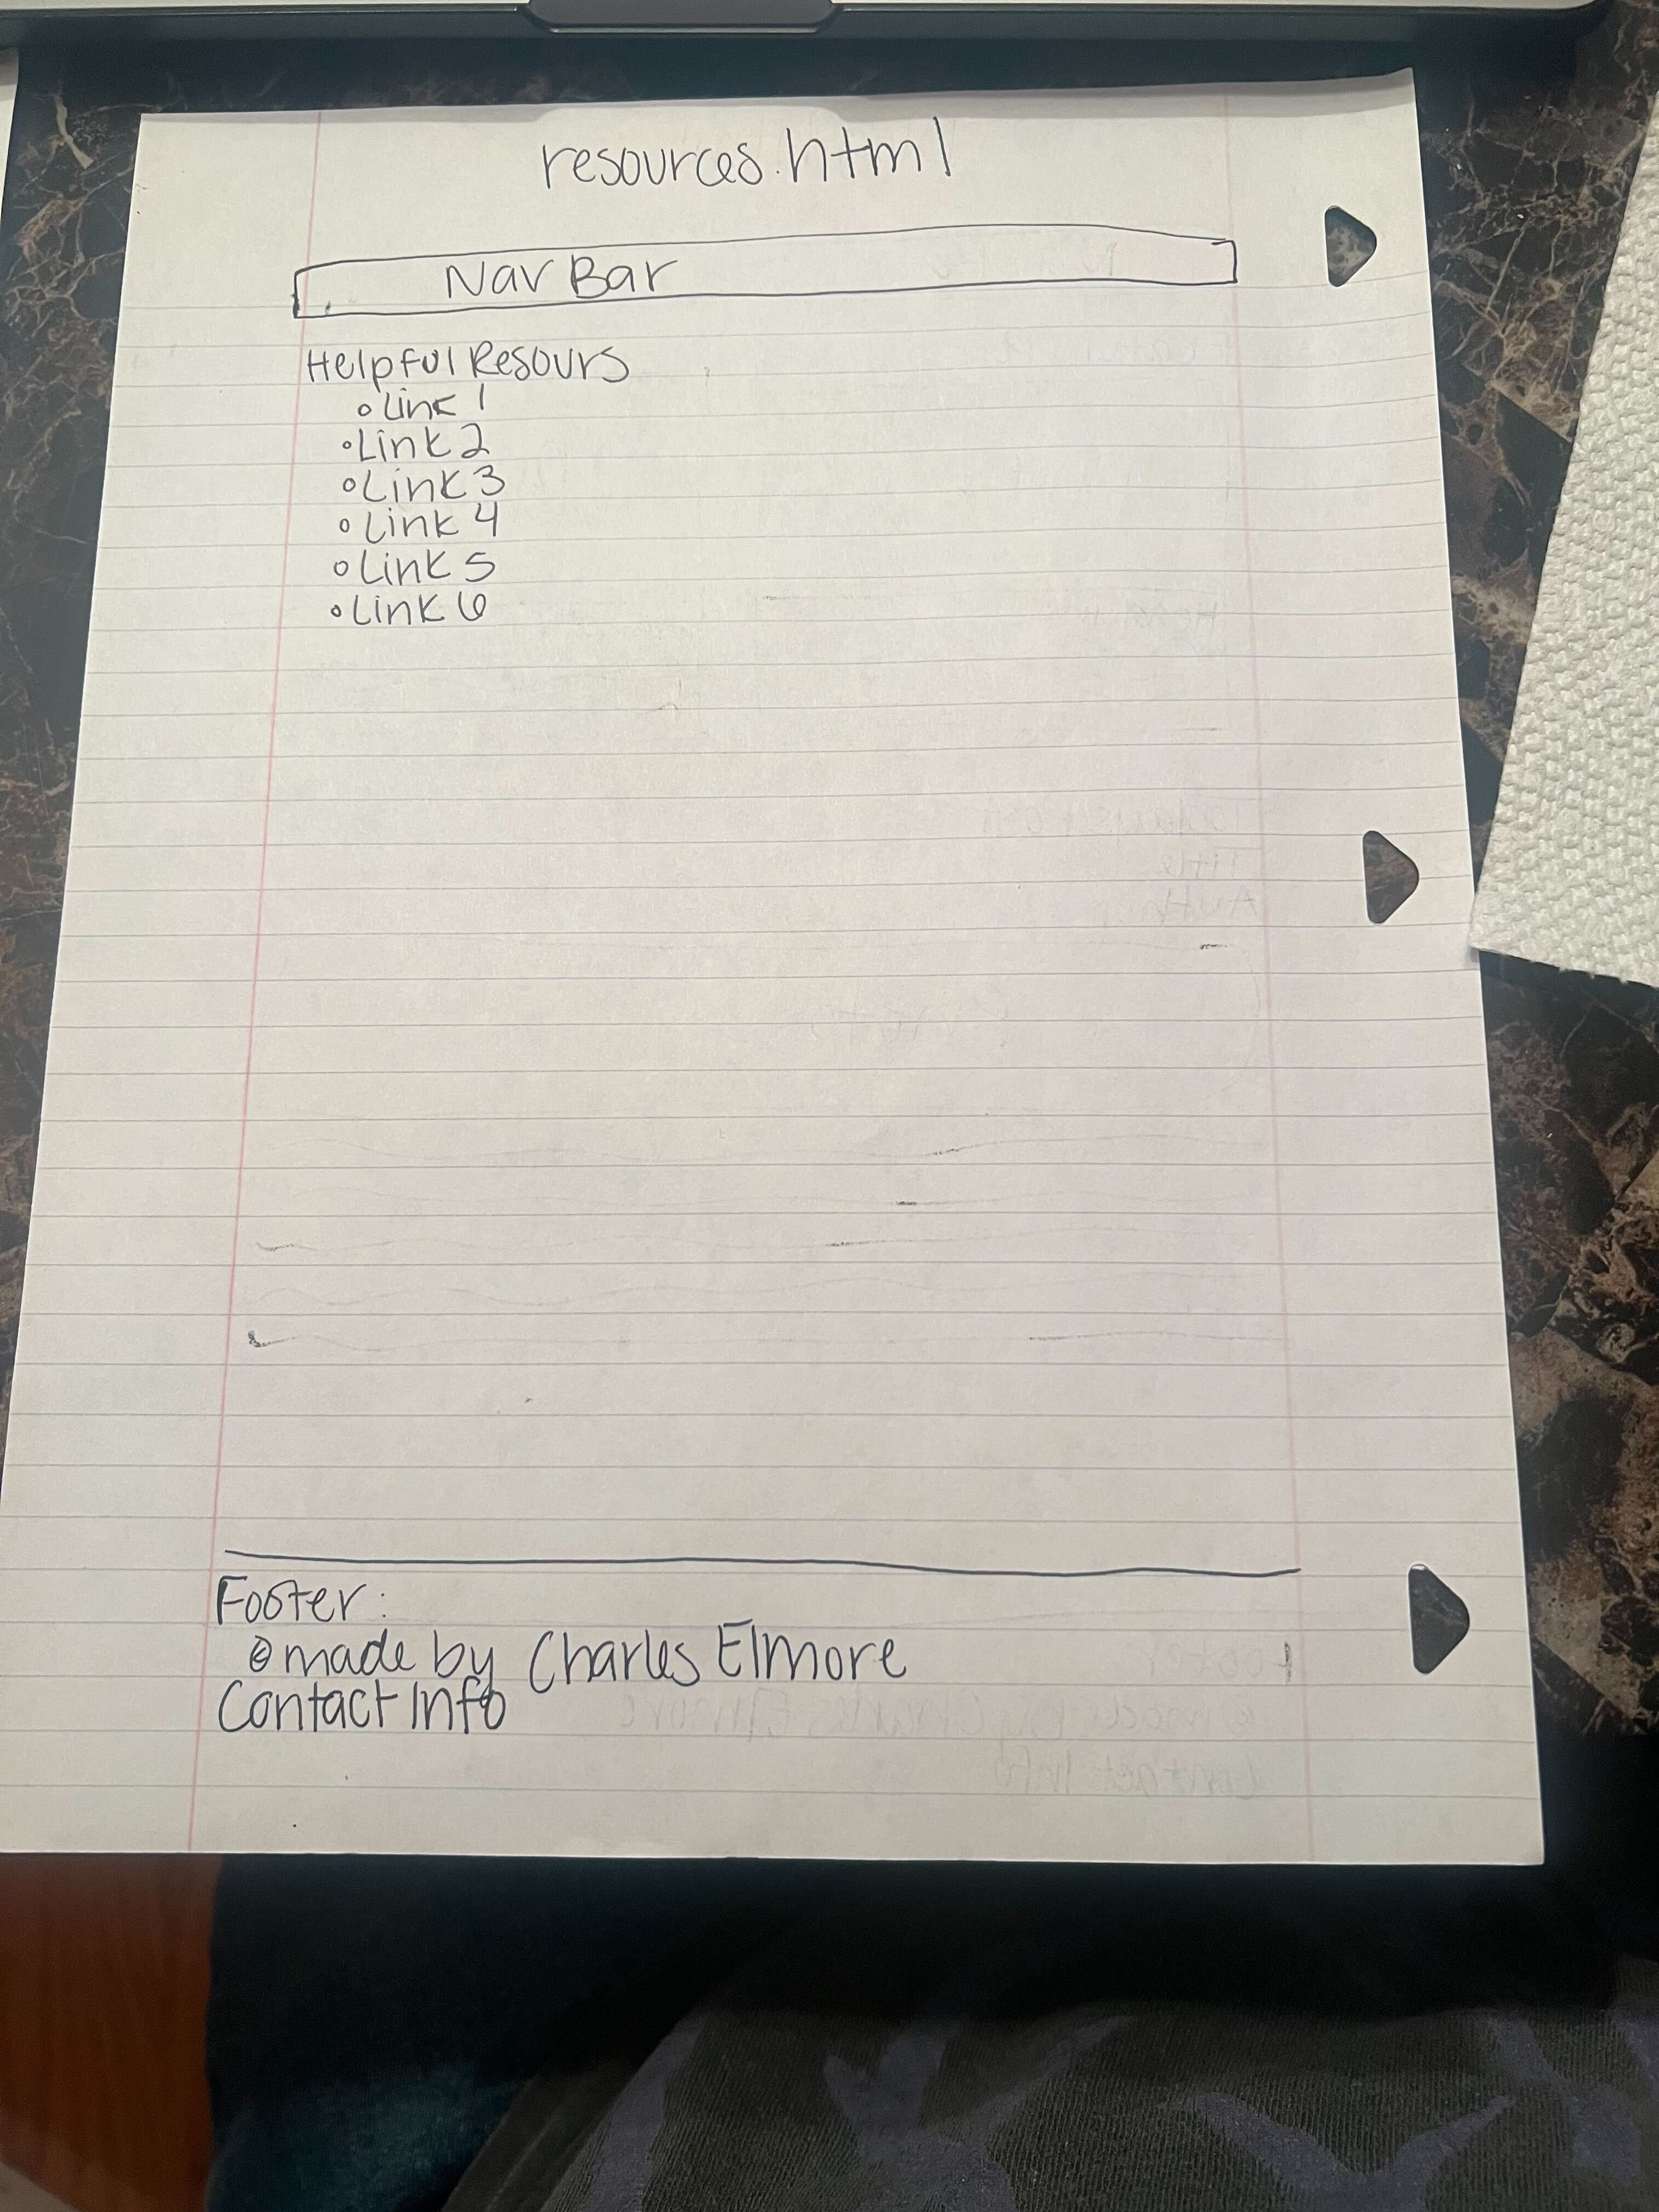 resources.html
Nav Bar
Helpful Resours
◦ Link 1
◦ Link 2
◦ Link 3
◦ Link 4
◦ Link 5
◦ Link 6
Footer:
© made by Charles Elmore
Contact Info